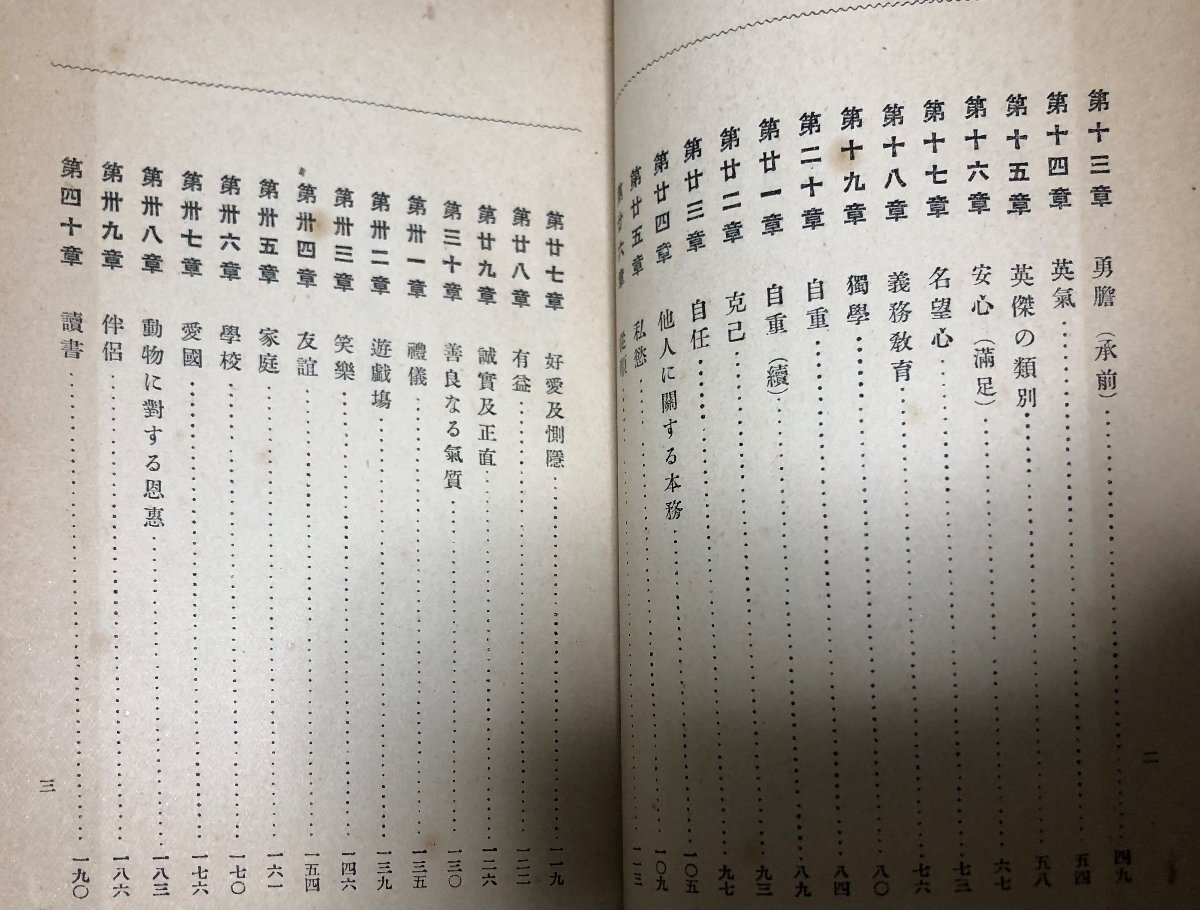 第十三章 勇膽（承前）……四九
第十四章 英氣……五四
第十五章 英傑の類別……五八
第十六章 安心（滿足）……六七
第十七章 名望心……七三
第十八章 義務教育……七六
第十九章 獨學……八〇
第二十章 自重……八四
第廿一章 自重（續）……八九
第廿二章 克己……九三
第廿三章 自任……九七
第廿四章 他人に關する本務……一〇五
第廿五章 私慾……一〇九
第廿六章 ……一一三
二
第廿七章 好愛及惻隱……一一九
第廿八章 有益……一二二
第廿九章 誠實及正直……一二六
第三十章 善良なる氣質……一三〇
第卅一章 禮儀……一三五
第卅二章 遊戯塲……一三九
第卅三章 笑樂……一四六
第卅四章 友誼……一五四
第卅五章 家庭……一六一
第卅六章 學校……一七〇
第卅七章 愛國……一七六
第卅八章 動物に對する恩惠……一八三
第卅九章 伴侶……一八六
第四十章 讀書……一九〇
三